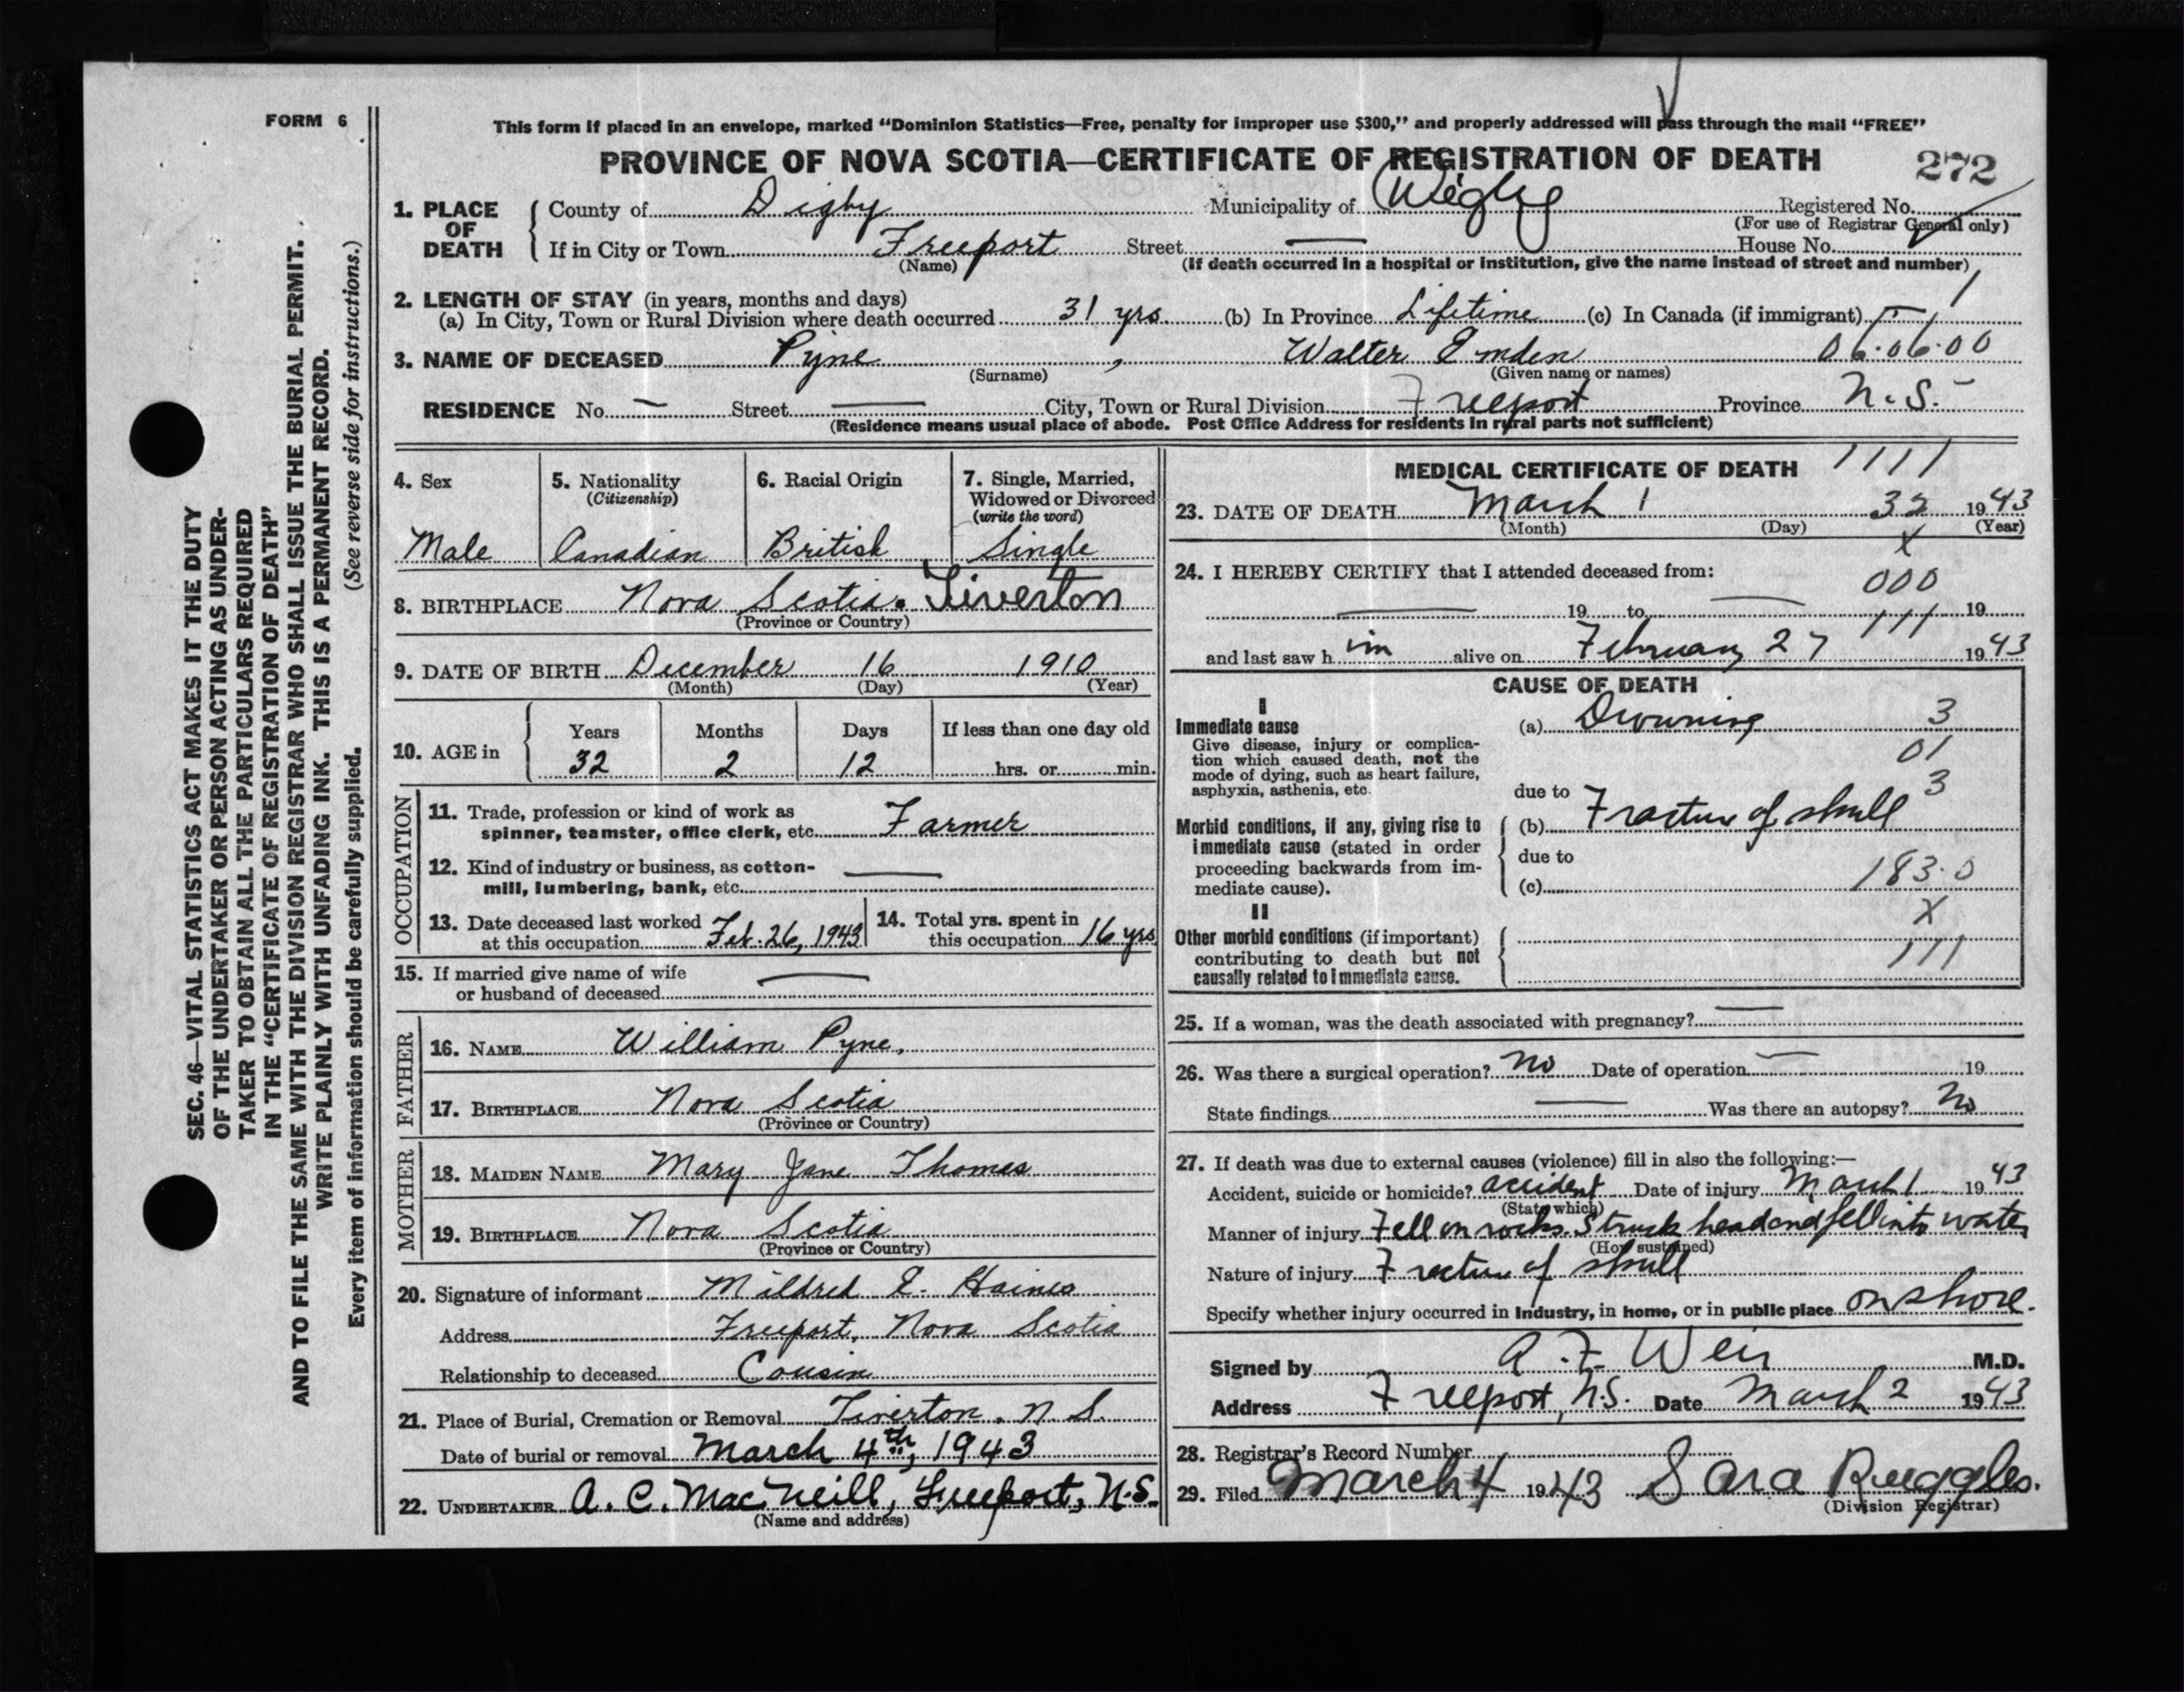 FORM 6
This form if placed in an envelope, marked “Dominion Statistics—Free, penalty for improper use $300,” and properly addressed will pass through the mail “FREE”
PROVINCE OF NOVA SCOTIA—CERTIFICATE OF REGISTRATION OF DEATH
272
1. PLACE OF DEATH { County of Digby Municipality of Digby Registered No.
(For use of Registrar General only)
If in City or Town Freeport Street — House No.
(Name) (If death occurred in a hospital or institution, give the name instead of street and number)
2. LENGTH OF STAY (in years, months and days)
(a) In City, Town or Rural Division where death occurred 31 yrs. (b) In Province Lifetime (c) In Canada (if immigrant) — 1
3. NAME OF DECEASED Pyne, Walter Emden 06.06.00
(Surname) (Given name or names)
RESIDENCE No. — Street — City, Town or Rural Division Freeport Province N.S.
(Residence means usual place of abode. Post Office Address for residents in rural parts not sufficient)
4. Sex
Male
5. Nationality
(Citizenship)
Canadian
6. Racial Origin
British
7. Single, Married,
Widowed or Divorced
(write the word)
Single
8. BIRTHPLACE Nova Scotia. Tiverton
(Province or Country)
9. DATE OF BIRTH December 16 1910
(Month) (Day) (Year)
10. AGE in { Years Months Days If less than one day old
32 2 12 hrs. or min.
OCCUPATION
11. Trade, profession or kind of work as
spinner, teamster, office clerk, etc. Farmer
12. Kind of industry or business, as cotton-
mill, lumbering, bank, etc. —
13. Date deceased last worked
at this occupation Feb. 26, 1943
14. Total yrs. spent in
this occupation 16 yrs
15. If married give name of wife
or husband of deceased —
FATHER
16. NAME William Pyne.
17. BIRTHPLACE Nova Scotia
(Province or Country)
MOTHER
18. MAIDEN NAME Mary Jane Thomas
19. BIRTHPLACE Nova Scotia
(Province or Country)
20. Signature of informant Mildred E. Haines
Address Freeport, Nova Scotia
Relationship to deceased Cousin
21. Place of Burial, Cremation or Removal Tiverton, N.S.
Date of burial or removal March 4th, 1943
22. UNDERTAKER A. C. MacNeill, Freeport, N.S.
(Name and address)
MEDICAL CERTIFICATE OF DEATH 1111
23. DATE OF DEATH March 1 32 1943
(Month) (Day) (Year)
X
24. I HEREBY CERTIFY that I attended deceased from: 000
— 19 to — 19
111
and last saw h im alive on February 27 1943
CAUSE OF DEATH
I
Immediate cause
Give disease, injury or complica-
tion which caused death, not the
mode of dying, such as heart failure,
asphyxia, asthenia, etc.
(a) Drowning 3
01
due to 3
Morbid conditions, if any, giving rise to
immediate cause (stated in order
proceeding backwards from im-
mediate cause).
(b) Fracture of skull
due to
(c) 183.0
II
X
Other morbid conditions (if important)
contributing to death but not
causally related to immediate cause.
111
25. If a woman, was the death associated with pregnancy? —
26. Was there a surgical operation? No Date of operation — 19
State findings — Was there an autopsy? No
27. If death was due to external causes (violence) fill in also the following:—
Accident, suicide or homicide? accident Date of injury March 1 1943
(State which)
Manner of injury Fell on rocks. Struck head and fell into water
(How sustained)
Nature of injury Fracture of skull
Specify whether injury occurred in industry, in home, or in public place on shore.
Signed by A. F. Weir M.D.
Address Freeport, N.S. Date March 2 1943
28. Registrar's Record Number
29. Filed March 4 1943 Sara Ruggles.
(Division Registrar)
SEC. 46—VITAL STATISTICS ACT MAKES IT THE DUTY
OF THE UNDERTAKER OR PERSON ACTING AS UNDER-
TAKER TO OBTAIN ALL THE PARTICULARS REQUIRED
IN THE “CERTIFICATE OF REGISTRATION OF DEATH”
AND TO FILE THE SAME WITH THE DIVISION REGISTRAR WHO SHALL ISSUE THE BURIAL PERMIT.
WRITE PLAINLY WITH UNFADING INK. THIS IS A PERMANENT RECORD.
(See reverse side for instructions.)
Every item of information should be carefully supplied.